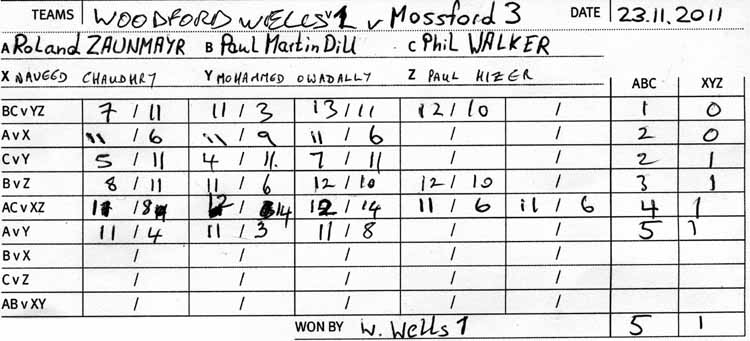 TEAMS WOODFORD WELLS 1 v Mossford 3 DATE 23.11.2011
A Roland ZAUNMAYR B Paul Martin Dill C Phil WALKER
X NAVEED CHAUDHRY Y MOHAMMED OWADALLY Z PAUL HIZER
ABC XYZ
BC v YZ 7 / 11 11 / 3 13 / 11 12 / 10 / 1 0
A v X 11 / 6 11 / 9 11 / 6 / / 2 0
C v Y 5 / 11 4 / 11 7 / 11 / / 2 1
B v Z 8 / 11 11 / 6 12 / 10 12 / 10 / 3 1
AC v XZ 11 / 8 12 / 14 12 / 14 11 / 6 11 / 6 4 1
A v Y 11 / 4 11 / 3 11 / 8 / / 5 1
B v X / / / / /
C v Z / / / / /
AB v XY / / / / /
WON BY W. Wells 1 5 1